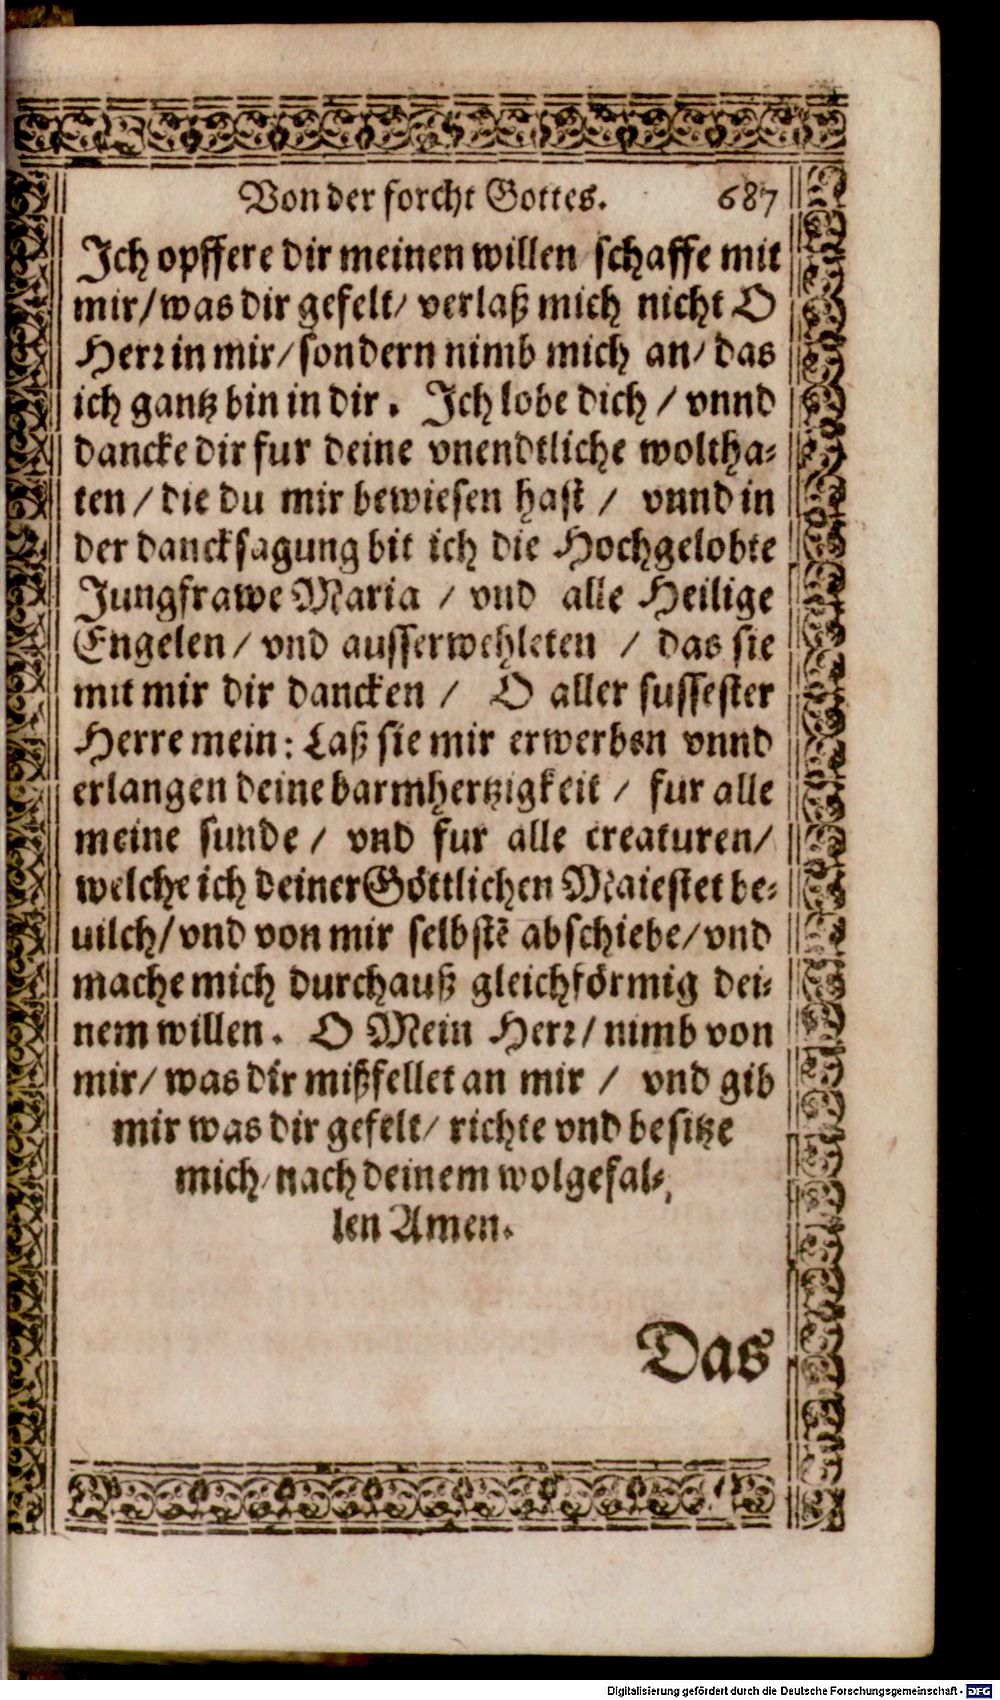 Von der forcht Gottes. 687
Ich opffere dir meinen willen/ schaffe mit
mir/ was dir gefelt/ verlaß mich nicht O
Herr in mir/ sondern nimb mich an/ das
ich gantz bin in dir. Ich lobe dich / vnnd
dancke dir fur deine vnendtliche woltha-
ten / die du mir bewiesen hast / vnnd in
der dancksagung bit ich die Hochgelobte
Jungfrawe Maria / vnd alle Heilige
Engelen/ vnd ausserwehleten / das sie
mit mir dir dancken / O aller sussester
Herre mein: Laß sie mir erwerben vnnd
erlangen deine barmhertzigkeit / fur alle
meine sunde / vnd fur alle creaturen/
welche ich deiner Göttlichen Maiestet be-
uilch/ vnd von mir selbstē abschiebe/ vnd
mache mich durchauß gleichförmig dei-
nem willen. O Mein Herr/ nimb von
mir/ was dir mißfellet an mir / vnd gib
mir was dir gefelt/ richte vnd besitze
mich/ nach deinem wolgefal-
len Amen.
Das
Digitalisierung gefördert durch die Deutsche Forschungsgemeinschaft - DFG